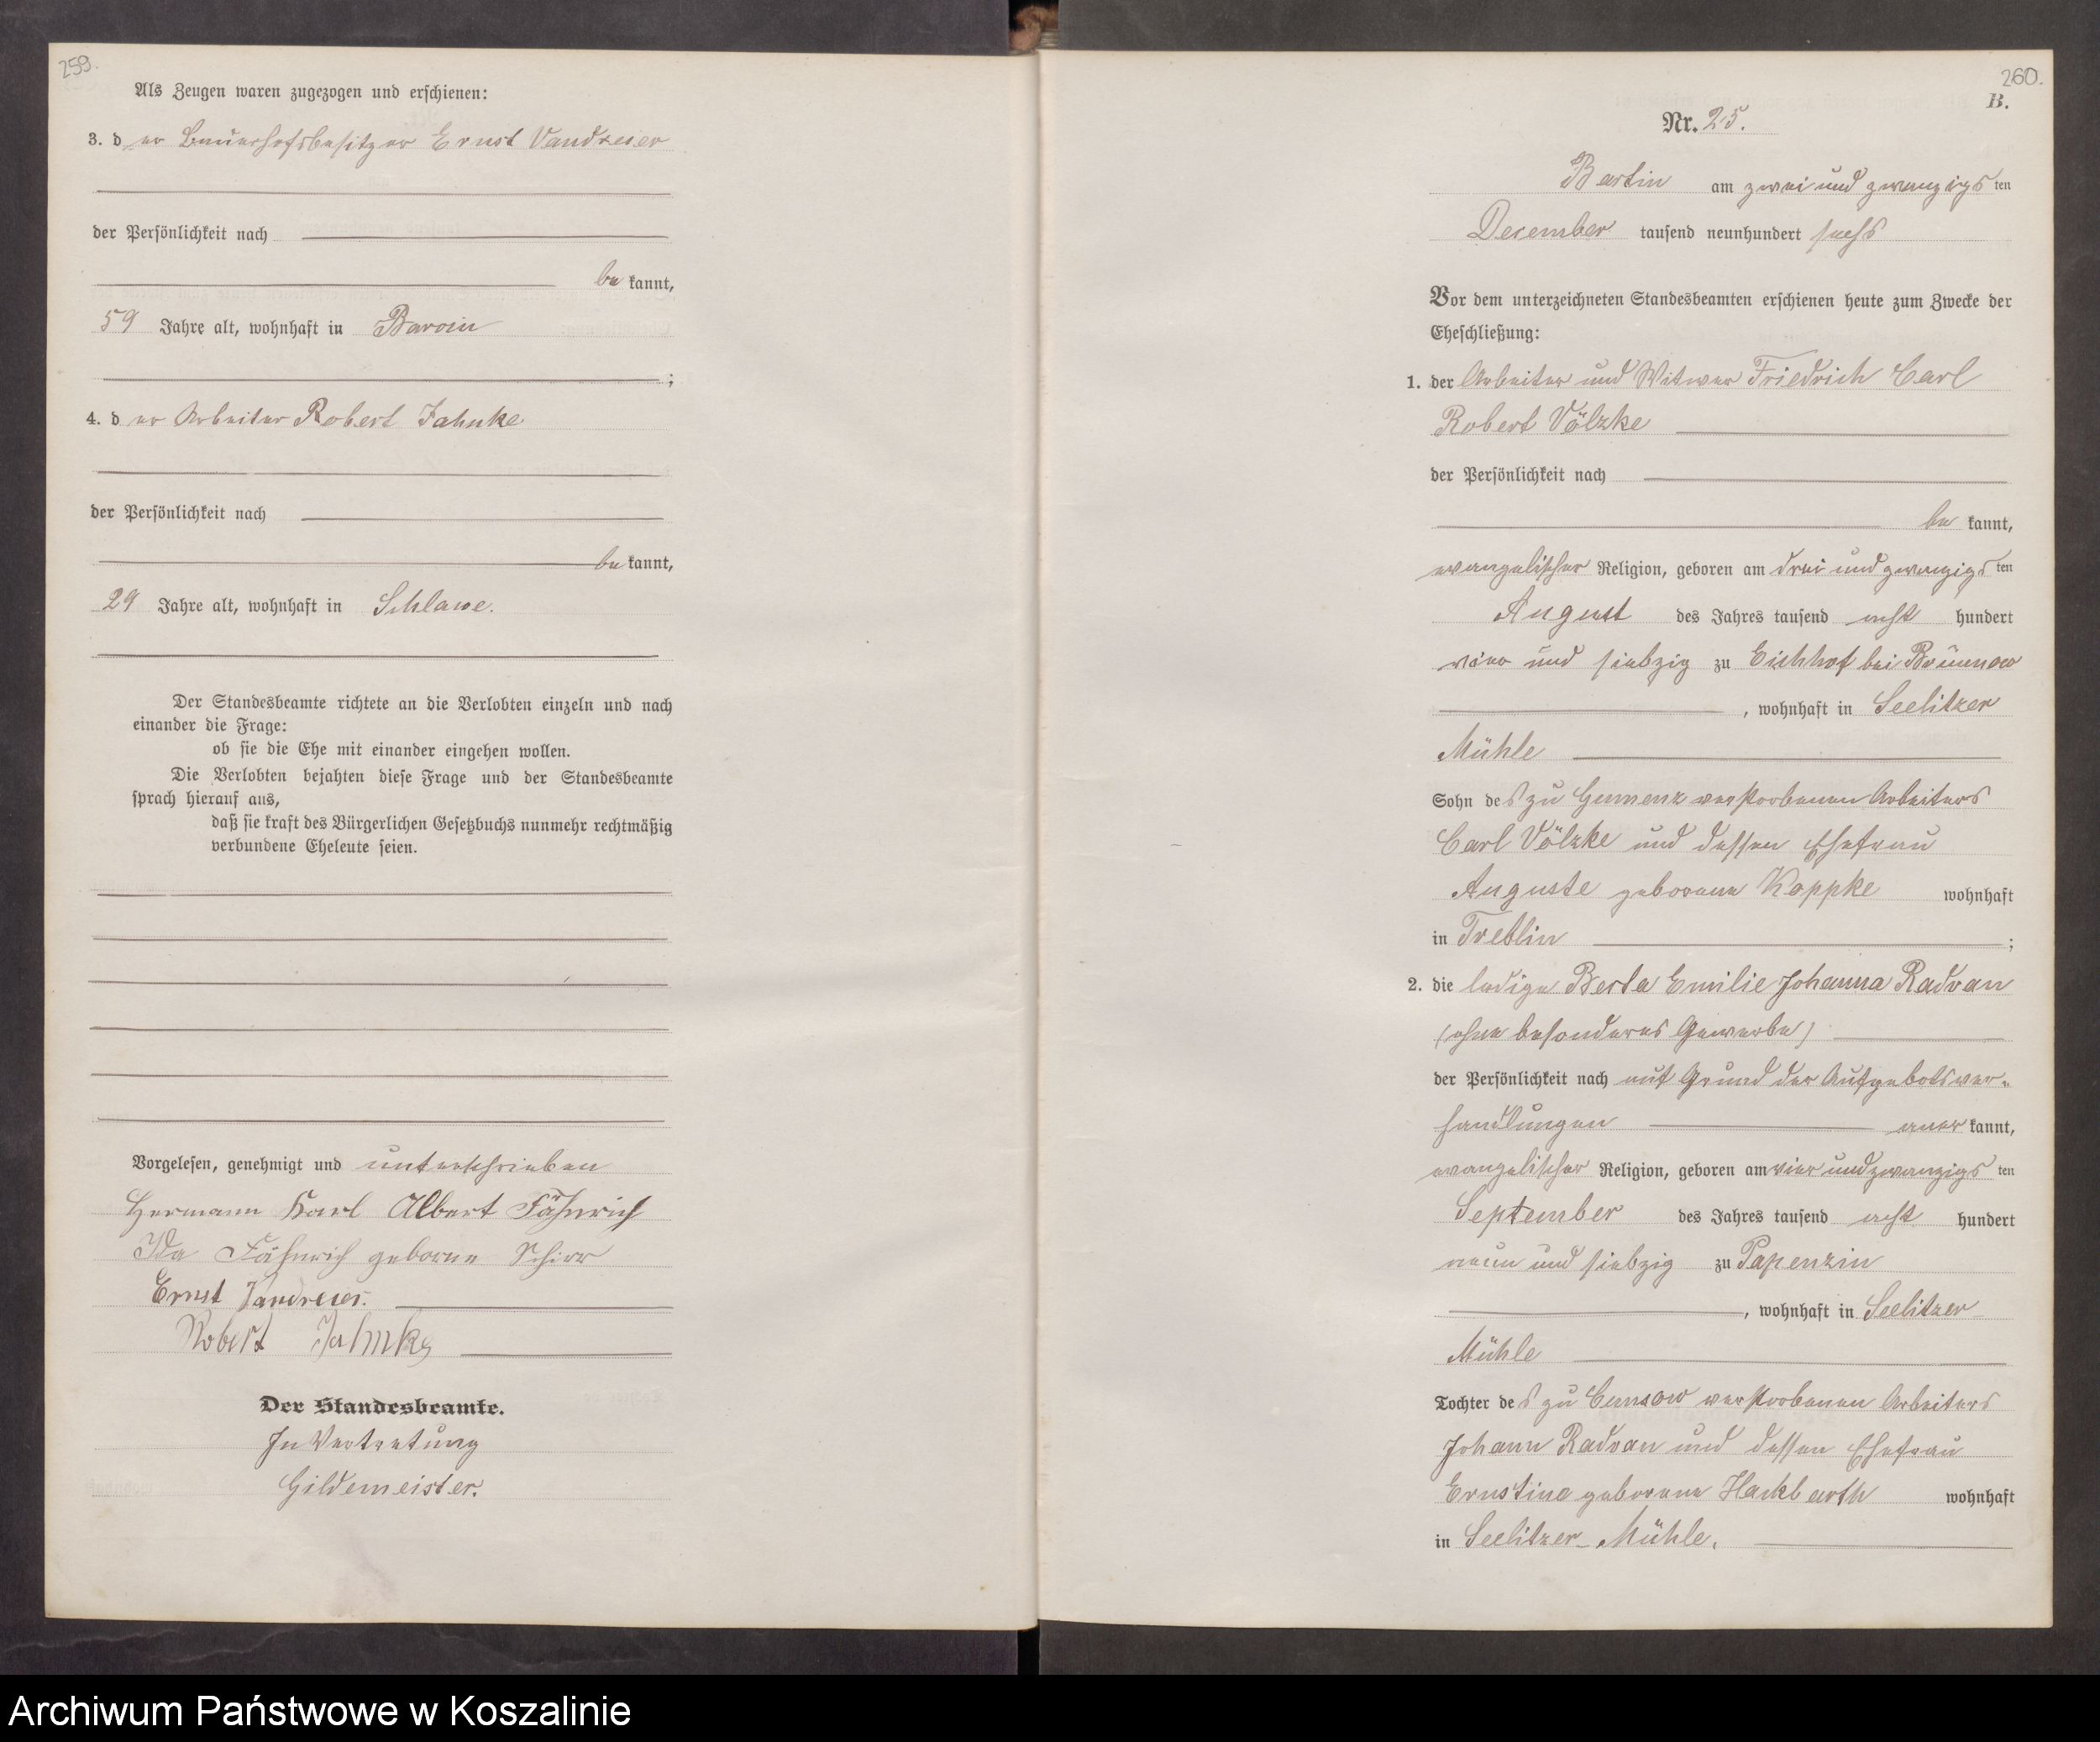 259.
Als Zeugen waren zugezogen und erschienen:
3. der Bauerhofsbesitzer Ernst Vandreier
der Persönlichkeit nach
be kannt,
59 Jahre alt, wohnhaft in Barvin
;
4. der Arbeiter Robert Jahnke
der Persönlichkeit nach
be kannt,
29 Jahre alt, wohnhaft in Schlawe.
Der Standesbeamte richtete an die Verlobten einzeln und nach
einander die Frage:
ob sie die Ehe mit einander eingehen wollen.
Die Verlobten bejahten diese Frage und der Standesbeamte
sprach hierauf aus,
daß sie kraft des Bürgerlichen Gesetzbuchs nunmehr rechtmäßig
verbundene Eheleute seien.
Vorgelesen, genehmigt und unterschrieben
Hermann Karl Albert Fähnrich
Ida Fähnrich geborne
Ernst Vandreier.
Robert Jahnke
Der Standesbeamte.
In Vertretung
Gildemeister.
260.
B.
Nr. 25.
Bartin am zwei und zwanzigsten
December tausend neunhundert sechs
Vor dem unterzeichneten Standesbeamten erschienen heute zum Zwecke der
Eheschließung:
1. der Arbeiter und Witwer Friedrich Carl
Robert Völzke
der Persönlichkeit nach
be kannt,
evangelischer Religion, geboren am drei und zwanzigsten
August des Jahres tausend acht hundert
vier und siebzig zu Eichhof bei Brünnow
, wohnhaft in Seelitzer
Mühle
Sohn des zu Gumenz verstorbenen Arbeiters
Carl Völzke und dessen Ehefrau
Auguste geborene Koppke wohnhaft
in Treblin ;
2. die ledige Berta Emilie Johanna Radvan
(ohne besonderes Gewerbe)
der Persönlichkeit nach auf Grund der Aufgebotsver-
handlungen aner kannt,
evangelischer Religion, geboren am vier und zwanzigsten
September des Jahres tausend acht hundert
neun und siebzig zu Papenzin
, wohnhaft in Seelitzer
Mühle
Tochter des zu Cunsow verstorbenen Arbeiters
Johann Radvan und dessen Ehefrau
Ernstine geborene Hackbarth wohnhaft
in Seelitzer-Mühle.
Archiwum Państwowe w Koszalinie